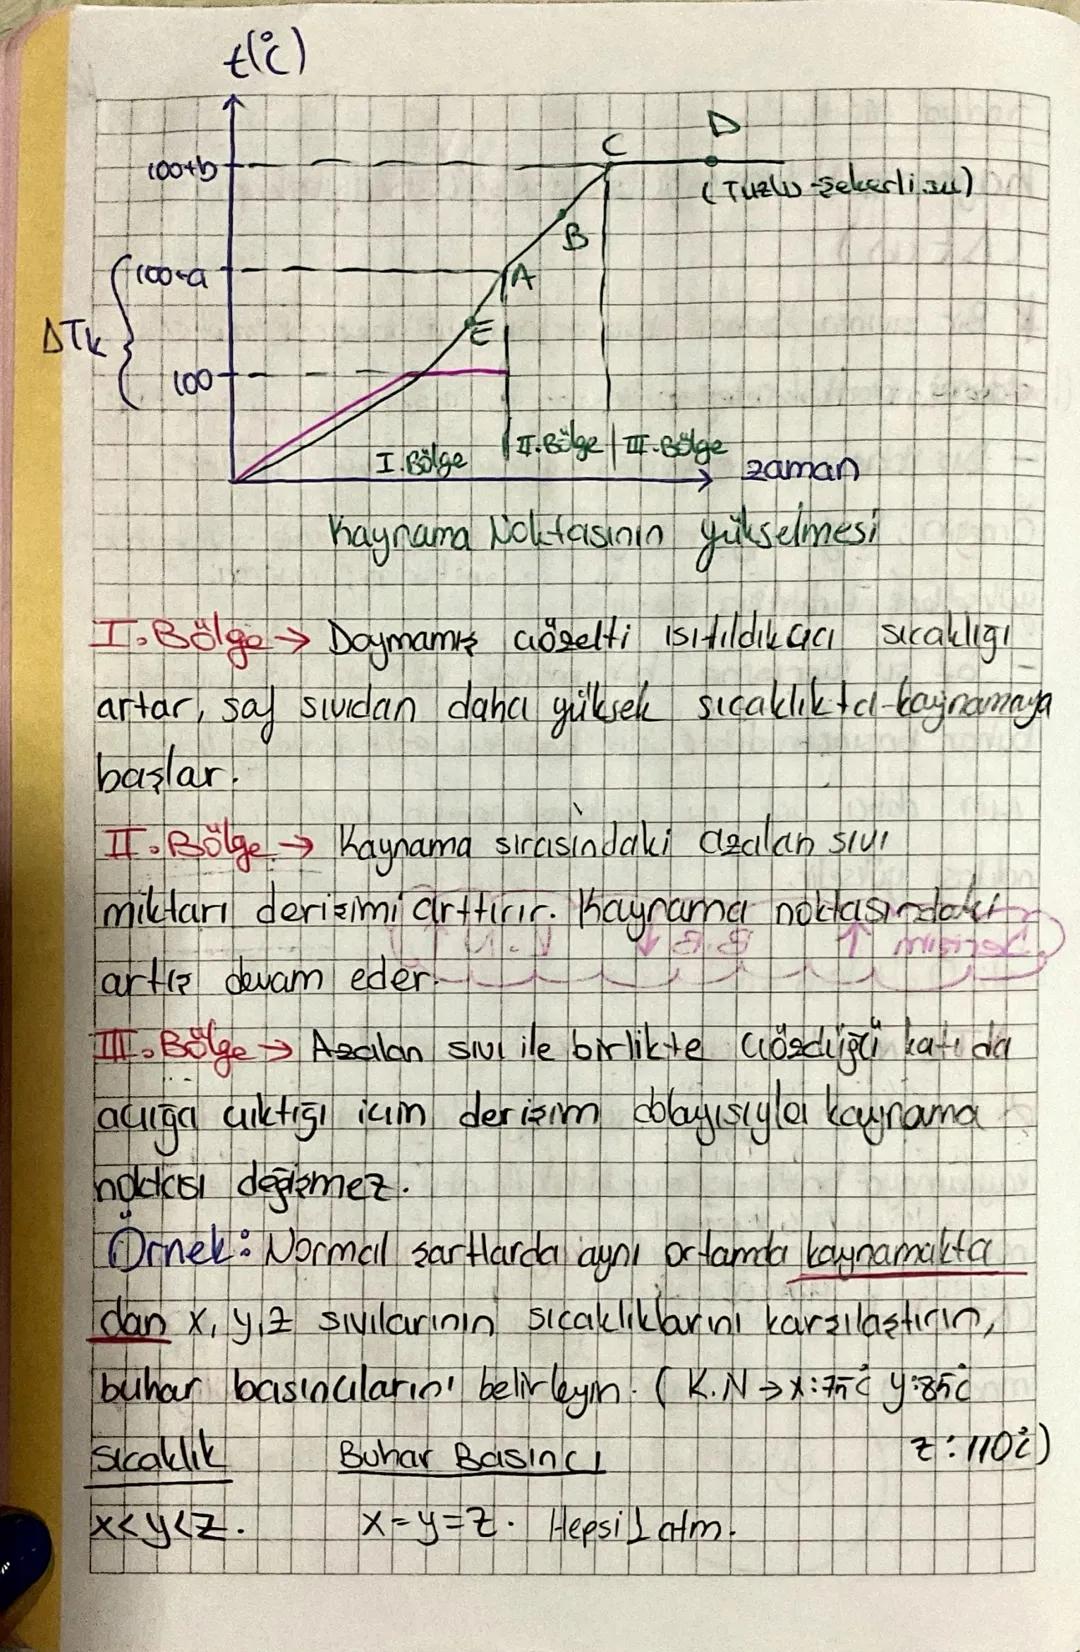 t(°C)
D
C
100+b
(Tuzlu-şekerli su)
B
100+a
A
ΔTk
E
100
I.Bölge
II.Bölge
III.Bölge
zaman
Kaynama Noktasının yükselmesi
I.Bölge → Doymamış çözelti ısıtıldıkça sıcaklığı
artar, saf sıvıdan daha yüksek sıcaklıkta kaynamaya
başlar.
II.Bölge → Kaynama sırasındaki azalan sıvı
miktarı derişimi arttırır. Kaynama noktasındaki
artış devam eder.
III.Bölge → Azalan sıvı ile birlikte çözdüğü katı da
açığa çıktığı için derişim dolayısıyla kaynama
noktası değişmez.
Örnek: Normal şartlarda aynı ortamda kaynamakta
dan x, y, z sıvılarının sıcaklıklarını karşılaştırın,
buhar basınçlarını belirleyin. (K.N → x:75°C y:85°C
z:110°C)
Sıcaklık Buhar Basıncı
x<y<z. x=y=z. Hepsi 1 atm.